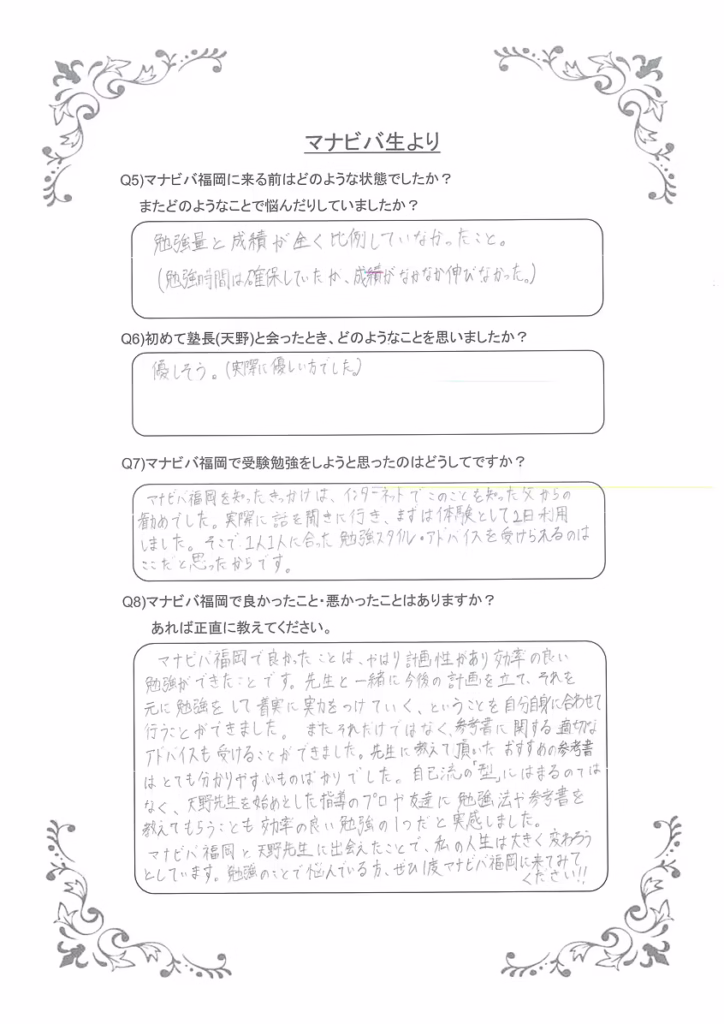 マナビバ生より
Q5)マナビバ福岡に来る前はどのような状態でしたか？
またどのようなことで悩んだりしていましたか？
勉強量と成績が全く比例していなかったこと。
(勉強時間は確保していたが、成績がなかなか伸びなかった。)
Q6)初めて塾長(天野)と会ったとき、どのようなことを思いましたか？
優しそう。(実際に優しい方でした。)
Q7)マナビバ福岡で受験勉強をしようと思ったのはどうしてですか？
マナビバ福岡を知ったきっかけは、インターネットでこのことを知った父からの
勧めでした。実際に話を聞きに行き、まずは体験として2日利用
しました。そこで、1人1人に合った勉強スタイル・アドバイスを受けられるのは
ここだと思ったからです。
Q8)マナビバ福岡で良かったこと・悪かったことはありますか？
あれば正直に教えてください。
マナビバ福岡で良かったことは、やはり計画性があり効率の良い
勉強ができたことです。先生と一緒に今後の計画を立て、それを
元に勉強をして着実に実力をつけていく、ということを自分自身に合わせて
行うことができました。またそれだけではなく、参考書に関する適切な
アドバイスも受けることができました。先生に教えて頂いたおすすめの参考書
はとても分かりやすいものばかりでした。自己流の「型」にはまるのでは
なく、天野先生を始めとした指導のプロや友達に勉強法や参考書を
教えてもらうことも効率の良い勉強の1つだと実感しました。
マナビバ福岡と天野先生に出会えたことで、私の人生は大きく変わろう
としています。勉強のことで悩んでいる方、ぜひ1度マナビバ福岡に来てみて
ください!!